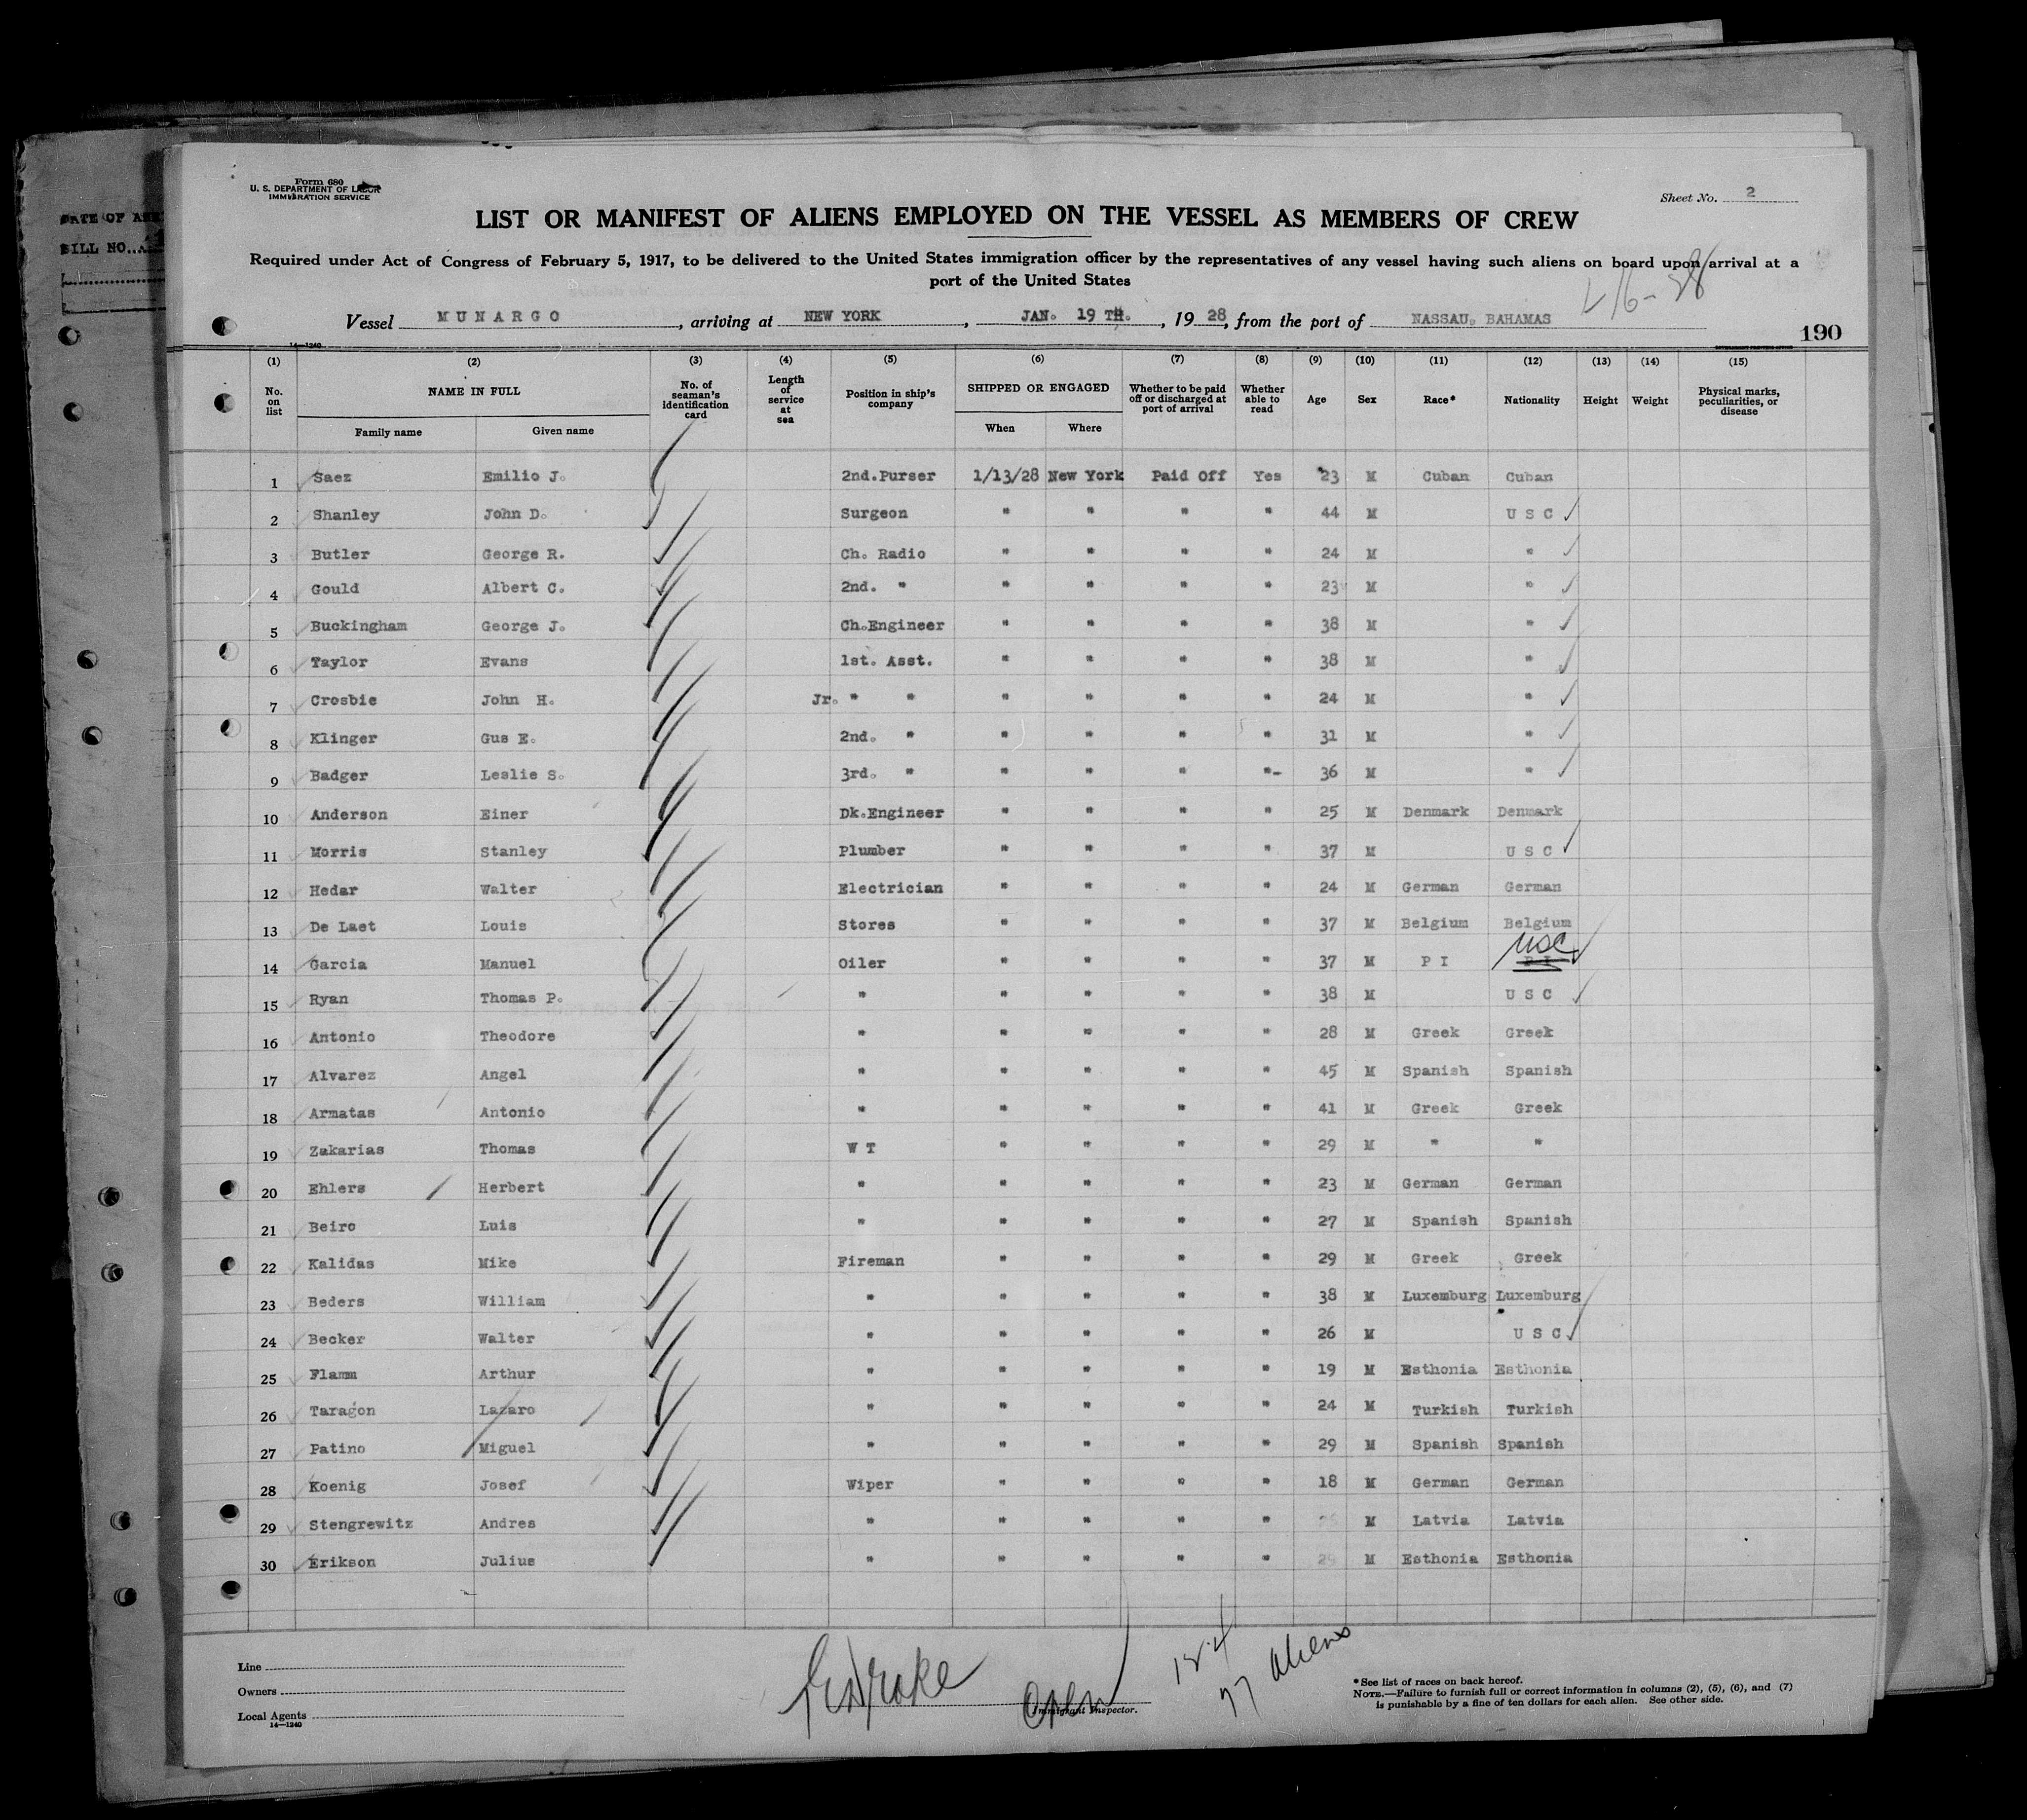 DATE OF
BILL NO.
Form 680
U. S. DEPARTMENT OF LABOR
IMMIGRATION SERVICE
Sheet No. 2
LIST OR MANIFEST OF ALIENS EMPLOYED ON THE VESSEL AS MEMBERS OF CREW
Required under Act of Congress of February 5, 1917, to be delivered to the United States immigration officer by the representatives of any vessel having such aliens on board upon arrival at a
port of the United States
Vessel MUNARGO, arriving at NEW YORK, JAN. 19 TH., 1928, from the port of NASSAU. BAHAMAS
14—1240
190
(1) (2) (3) (4) (5) (6) (7) (8) (9) (10) (11) (12) (13) (14) (15)
No. on list NAME IN FULL No. of seaman's identification card Length of service at sea Position in ship's company SHIPPED OR ENGAGED Whether to be paid off or discharged at port of arrival Whether able to read Age Sex Race* Nationality Height Weight Physical marks, peculiarities, or disease
Family name Given name When Where
1 Saez Emilio J. 2nd.Purser 1/13/28 New York Paid Off Yes 23 M Cuban Cuban
2 Shanley John D. Surgeon " " " " 44 M U S C
3 Butler George R. Ch. Radio " " " " 24 M "
4 Gould Albert C. 2nd. " " " " " 23 M "
5 Buckingham George J. Ch.Engineer " " " " 38 M "
6 Taylor Evans 1st. Asst. " " " " 38 M "
7 Crosbie John H. Jr. " " " " " " 24 M "
8 Klinger Gus E. 2nd. " " " " " 31 M "
9 Badger Leslie S. 3rd. " " " " "- 36 M "
10 Anderson Einer Dk.Engineer " " " " 25 M Denmark Denmark
11 Morris Stanley Plumber " " " " 37 M U S C
12 Hedar Walter Electrician " " " " 24 M German German
13 De Laet Louis Stores " " " " 37 M Belgium Belgium
14 Garcia Manuel Oiler " " " " 37 M P I P I USC
15 Ryan Thomas P. " " " " " 38 M U S C
16 Antonio Theodore " " " " " 28 M Greek Greek
17 Alvarez Angel " " " " " 45 M Spanish Spanish
18 Armatas Antonio " " " " " 41 M Greek Greek
19 Zakarias Thomas W T " " " " 29 M " "
20 Ehlers Herbert " " " " " 23 M German German
21 Beiro Luis " " " " " 27 M Spanish Spanish
22 Kalidas Mike Fireman " " " " 29 M Greek Greek
23 Beders William " " " " " 38 M Luxemburg Luxemburg
24 Becker Walter " " " " " 26 M U S C
25 Flamm Arthur " " " " " 19 M Esthonia Esthonia
26 Taragon Lazaro " " " " " 24 M Turkish Turkish
27 Patino Miguel " " " " " 29 M Spanish Spanish
28 Koenig Josef Wiper " " " " 18 M German German
29 Stengrewitz Andres " " " " " M Latvia Latvia
30 Erikson Julius " " " " " 29 M Esthonia Esthonia
Line
Owners
Local Agents
14—1240
Immigrant Inspector.
77 aliens
*See list of races on back hereof.
NOTE.—Failure to furnish full or correct information in columns (2), (5), (6), and (7)
is punishable by a fine of ten dollars for each alien. See other side.